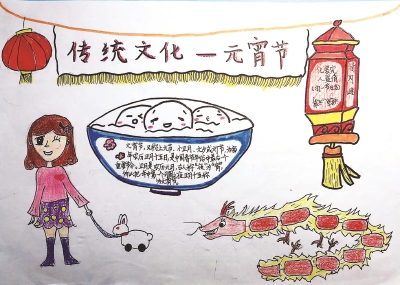 传统文化—元宵节
元宵节,又称上元节、小正月、元夕或灯节,为每
年农历正月十五日,是中国春节年俗中最后一个
重要节令。正月是农历元月,古人称“夜”为“宵”,
所以把一年中第一个月圆之夜正月十五称
为元宵节。